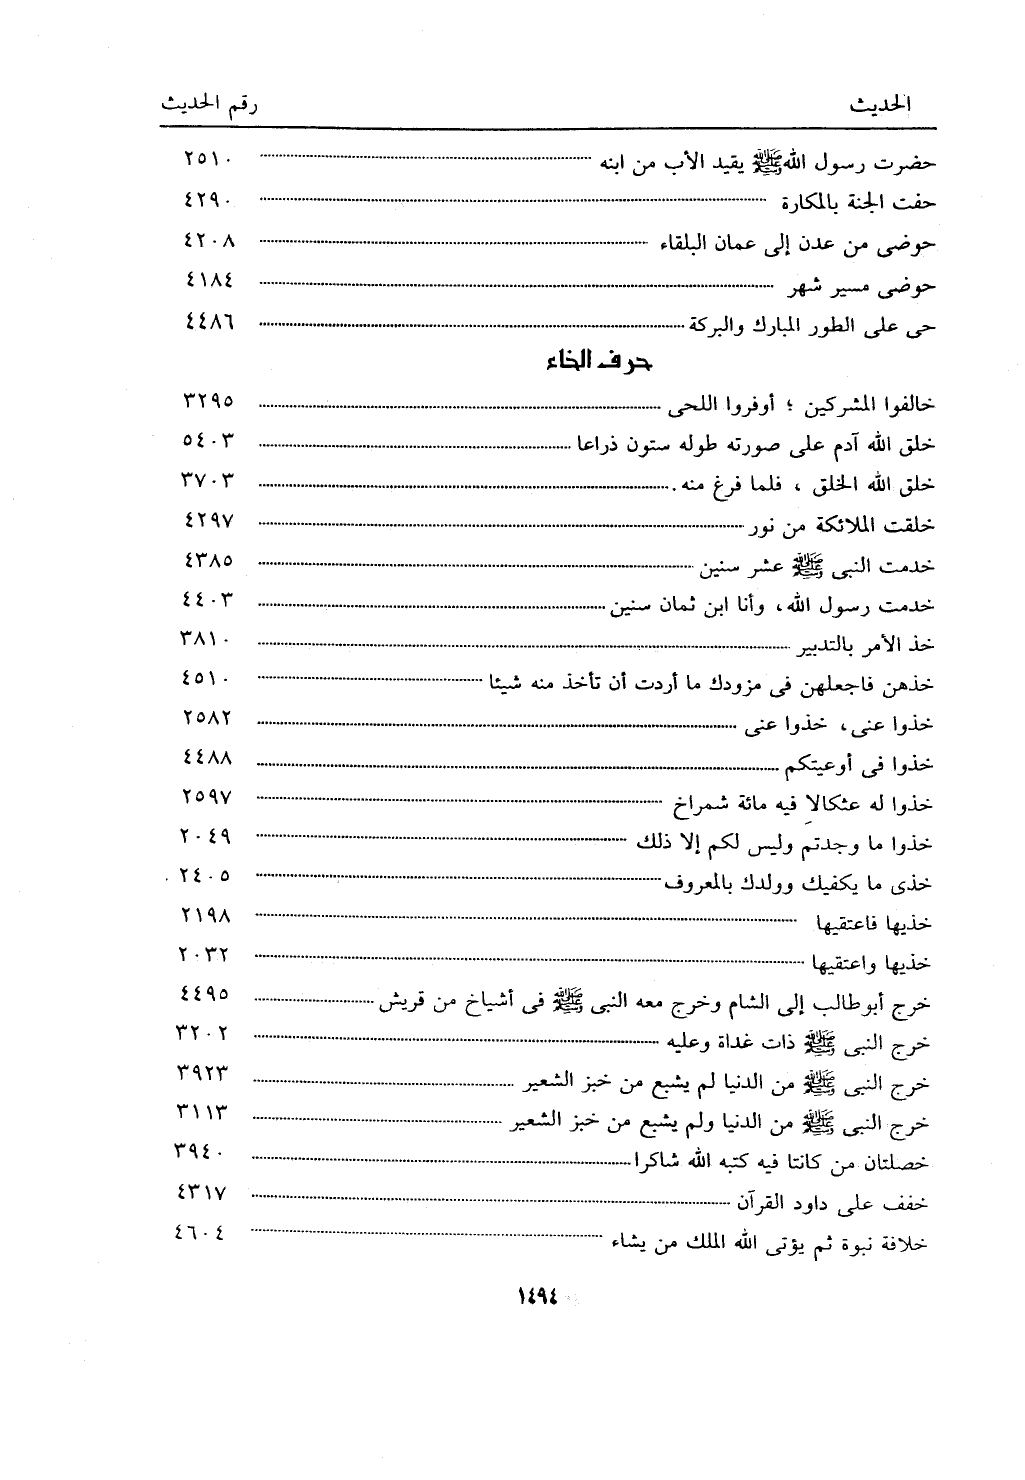 الحديث رقم الحديث
حضرت رسول الله ﷺ يقيد الأب من ابنه ٢٥١٠
حفت الجنة بالمكارة ٤٢٩٠
حوضى من عدن إلى عمان البلقاء ٤٢٠٨
حوضى مسير شهر ٤١٨٤
حى على الطور المبارك والبركة ٤٤٨٦
حرف الخاء
خالفوا المشركين ؛ أوفروا اللحى ٣٢٩٥
خلق الله آدم على صورته طوله ستون ذراعا ٥٤٠٣
خلق الله الخلق ، فلما فرغ منه . ٣٧٠٣
خلقت الملائكة من نور ٤٢٩٧
خدمت النبى ﷺ عشر سنين ٤٣٨٥
خدمت رسول الله، وأنا ابن ثمان سنين ٤٤٠٣
خذ الأمر بالتدبير ٣٨١٠
خذهن فاجعلهن فى مزودك ما أردت أن تأخذ منه شيئا ٤٥١٠
خذوا عنى، خذوا عنى ٢٥٨٢
خذوا فى أوعيتكم ٤٤٨٨
خذوا له عثكالاِ فيه مائة شمراخ ٢٥٩٧
خذوا ما وجدتم وليس لكم إلا ذلك ٢٠٤٩
خذى ما يكفيك وولدك بالمعروف ٢٤٠٥
خذيها فاعتقيها ٢١٩٨
خذيها واعتقيها ٢٠٣٢
خرج أبوطالب إلى الشام وخرج معه النبى ﷺ فى أشياخ من قريش ٤٤٩٥
خرج النبى ﷺ ذات غداة وعليه ٣٢٠٢
خرج النبى ﷺ من الدنيا لم يشبع من خبز الشعير ٣٩٢٣
خرج النبى ﷺ من الدنيا ولم يشبع من خبز الشعير ٣١١٣
خصلتان من كانتا فيه كتبه الله شاكرا ٣٩٤٠
خفف على داود القرآن ٤٣١٧
خلافة نبوة ثم يؤتى الله الملك من يشاء ٤٦٠٤
١٤٩٤